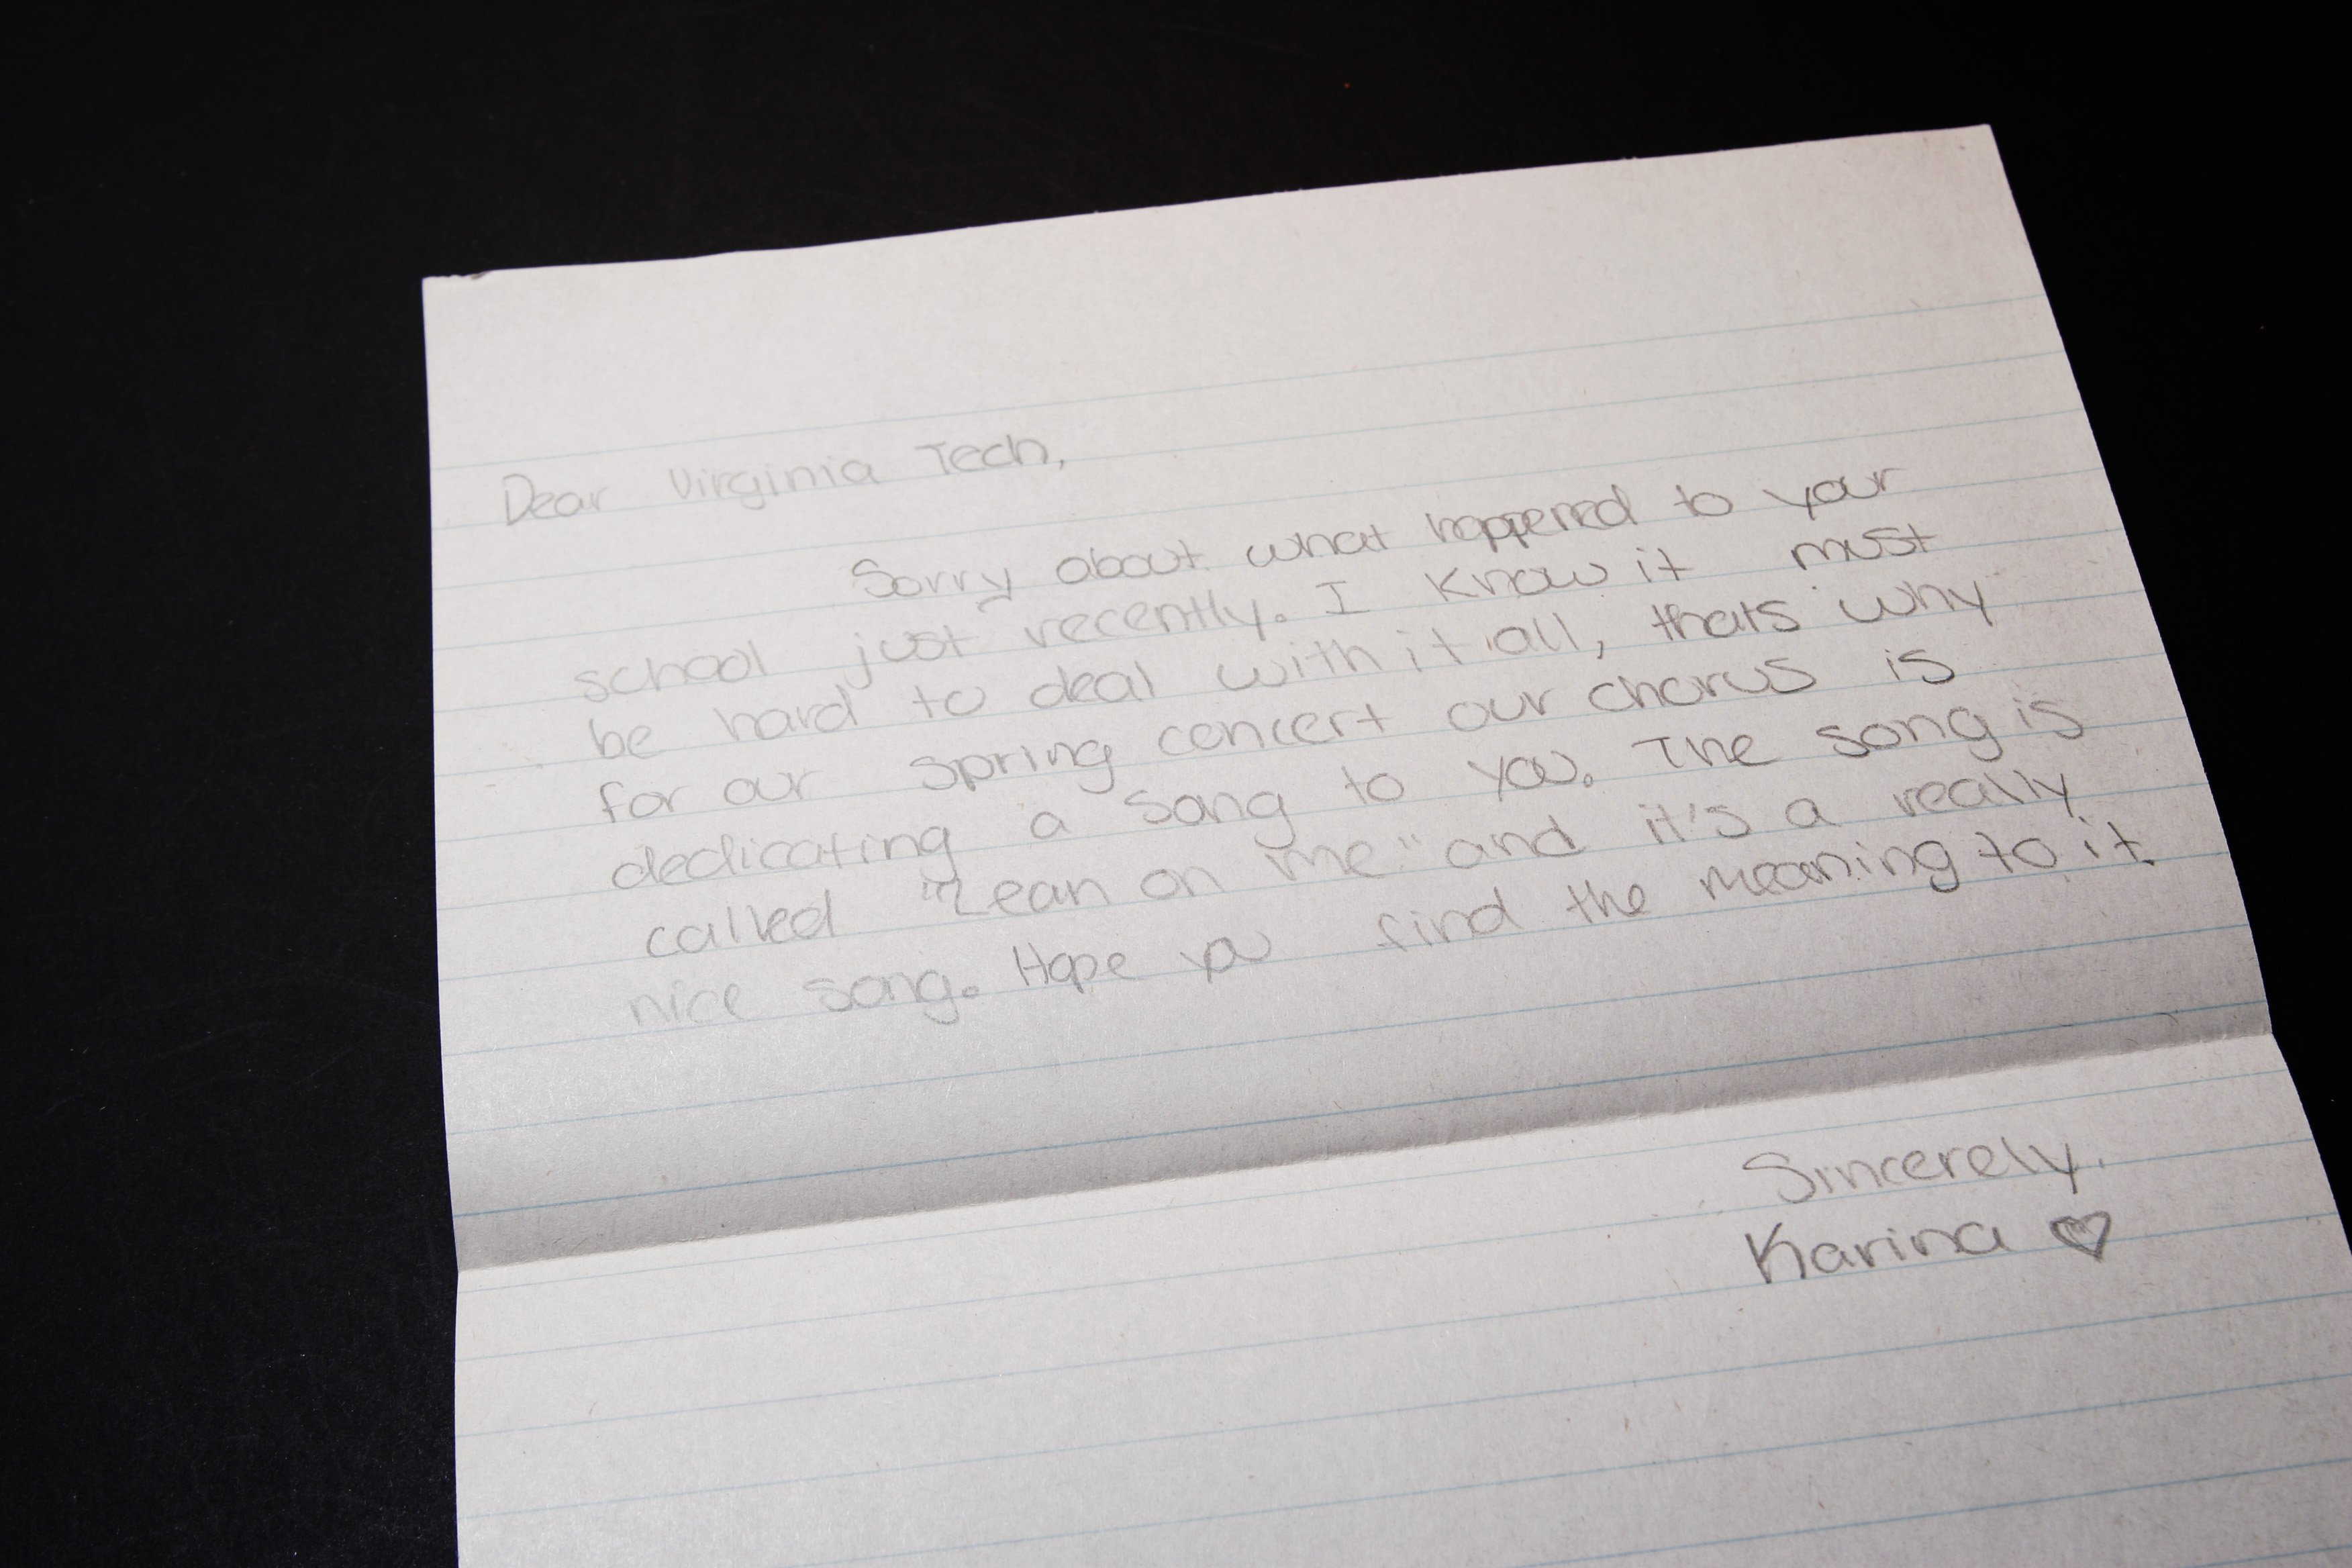 Dear Virginia Tech,
Sorry about what happened to your
school just recently. I know it must
be hard to deal with it all, thats why
for our spring concert our chorus is
dedicating a song to you. The song is
called "Lean on me" and it's a really
nice song. Hope you find the meaning to it.
Sincerely,
Karina ♡